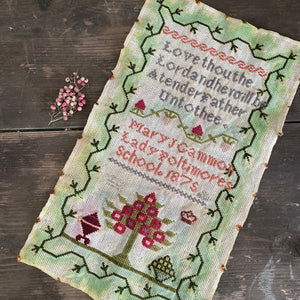 Love thou the
Lord and he will be
A tender Father
Unto thee
Mary J Gammon
Lady Poltimore's
School. 1875